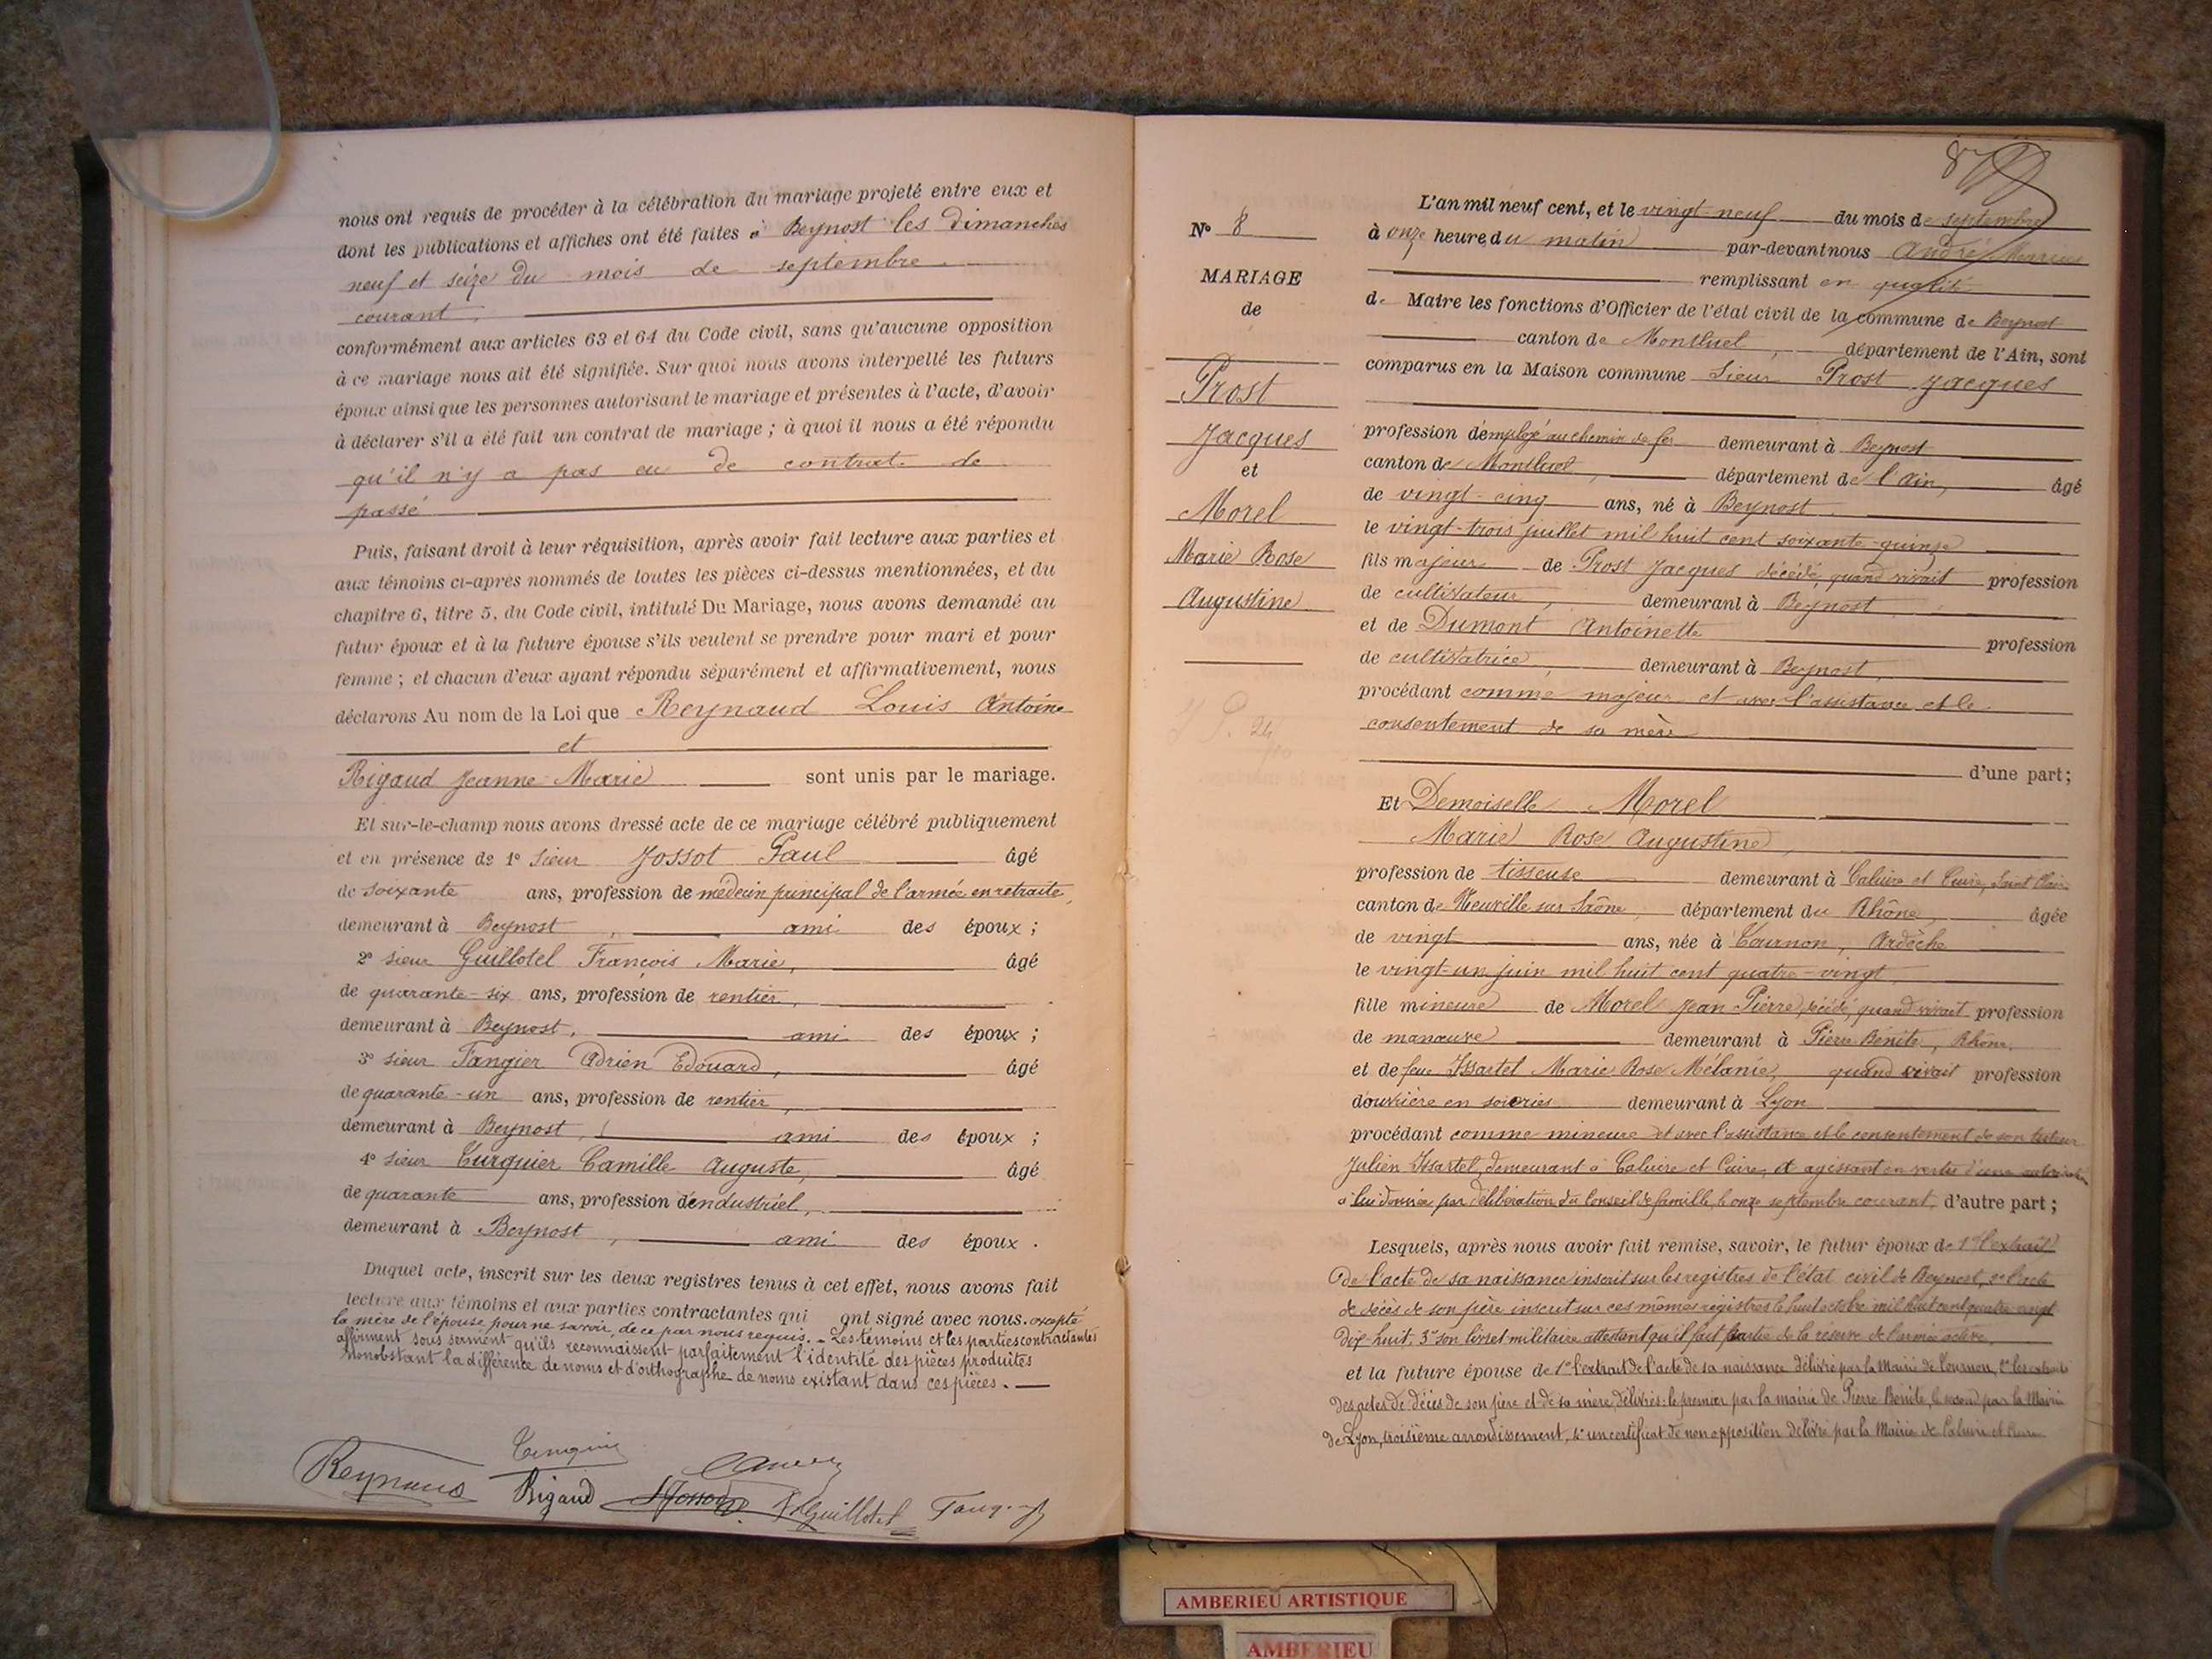 nous ont requis de procéder à la célébration du mariage projeté entre eux et
dont les publications et affiches ont été faites à Beynost les dimanches
neuf et seize du mois de septembre
courant.
conformément aux articles 63 et 64 du Code civil, sans qu'aucune opposition
à ce mariage nous ait été signifiée. Sur quoi nous avons interpellé les futurs
époux ainsi que les personnes autorisant le mariage et présentes à l'acte, d'avoir
à déclarer s'il a été fait un contrat de mariage ; à quoi il nous a été répondu
qu'il n'y a pas eu de contrat de
passé
Puis, faisant droit à leur réquisition, après avoir fait lecture aux parties et
aux témoins ci-après nommés de toutes les pièces ci-dessus mentionnées, et du
chapitre 6, titre 5, du Code civil, intitulé Du Mariage, nous avons demandé au
futur époux et à la future épouse s'ils veulent se prendre pour mari et pour
femme ; et chacun d'eux ayant répondu séparément et affirmativement, nous
déclarons Au nom de la Loi que Reynaud Louis Antoine
et
Rigaud Jeanne Marie sont unis par le mariage.
Et sur-le-champ nous avons dressé acte de ce mariage célébré publiquement
et en présence de 1° sieur Jossot Paul âgé
de soixante ans, profession de médecin principal de l'armée en retraite,
demeurant à Beynost, ami des époux ;
2° sieur Guillotel François Marie, âgé
de quarante-six ans, profession de rentier,
demeurant à Beynost, ami des époux ;
3° sieur Tangier Adrien Edouard, âgé
de quarante-un ans, profession de rentier,
demeurant à Beynost, ami des époux ;
4° sieur Turquier Camille Auguste, âgé
de quarante ans, profession d'endustriel,
demeurant à Beynost, ami des époux.
Duquel acte, inscrit sur les deux registres tenus à cet effet, nous avons fait
lecture aux témoins et aux parties contractantes qui ont signé avec nous. excepté
la mère de l'épouse pour ne savoir, de ce par nous requis. - Les témoins et les parties contractantes
affirment sous serment qu'ils reconnaissent parfaitement l'identité des pièces produites
nonobstant la différence de noms et d'orthographe de noms existant dans ces pièces.
Reynaud Rigaud Jossot Guillotel
87
N° 8
MARIAGE
de
Prost
Jacques
et
Morel
Marie Rose
Augustine
L'an mil neuf cent, et le vingt-neuf du mois de septembre
à onze heure du matin par-devant nous André Marius
remplissant en qualité
de Maire les fonctions d'Officier de l'état civil de la commune de Beynost
canton de Montluel, département de l'Ain, sont
comparus en la Maison commune Sieur Prost Jacques
profession d'employé au chemin de fer demeurant à Beynost
canton de Montluel, département de l'Ain, âgé
de vingt-cinq ans, né à Beynost
le vingt-trois juillet mil huit cent soixante-quinze
fils majeur de Prost Jacques décédé, quand vivait profession
de cultivateur, demeurant à Beynost
et de Dumont Antoinette profession
de cultivatrice, demeurant à Beynost,
procédant comme majeur et avec l'assistance et le
consentement de sa mère
d'une part ;
Et Demoiselle Morel
Marie Rose Augustine,
profession de tisseuse demeurant à Caluire et Cuire, Saint Clair
canton de Neuville sur Saône, département du Rhône, âgée
de vingt ans, née à Tournon, Ardèche
le vingt-un juin mil huit cent quatre-vingt
fille mineure de Morel Jean Pierre, décédé, quand vivait profession
de manœuvre demeurant à Pierre-Bénite, Rhône,
et de feue Issartel Marie Rose Mélanie, quand vivait profession
d'ouvrière en soieries demeurant à Lyon
procédant comme mineure et avec l'assistance et le consentement de son tuteur
Julien Issartel, demeurant à Caluire et Cuire, et agissant en vertu d'une autorisation
à lui donnée par délibération du Conseil de famille, le onze septembre courant, d'autre part ;
Lesquels, après nous avoir fait remise, savoir, le futur époux de 1° l'extrait
de l'acte de sa naissance inscrit sur les registres de l'état civil de Beynost, 2° l'acte
de décès de son père inscrit sur ces mêmes registres le huit octobre mil huit cent quatre-vingt
dix-huit. 3° son livret militaire attestant qu'il fait partie de la réserve de l'armée active.
et la future épouse de 1° l'extrait de l'acte de sa naissance délivré par la Mairie de Tournon, 2° les extraits
des actes de décès de son père et de sa mère, délivrés : le premier par la mairie de Pierre Bénite, le second par la Mairie
de Lyon, troisième arrondissement, 4° un certificat de non opposition délivré par la Mairie de Caluire et Cuire
AMBERIEU ARTISTIQUE
AMBERIEU